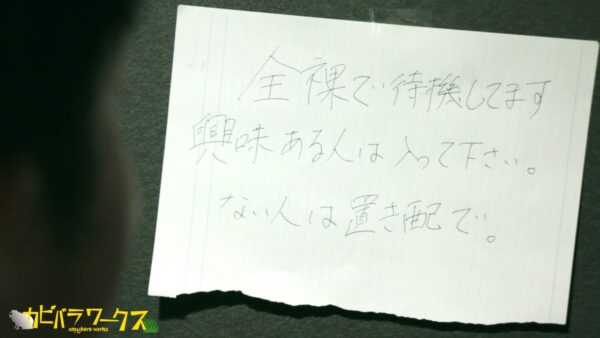 全裸で待機してます
興味ある人は入って下さい。
ない人は置き配で。
カピバラワークス
capybara works